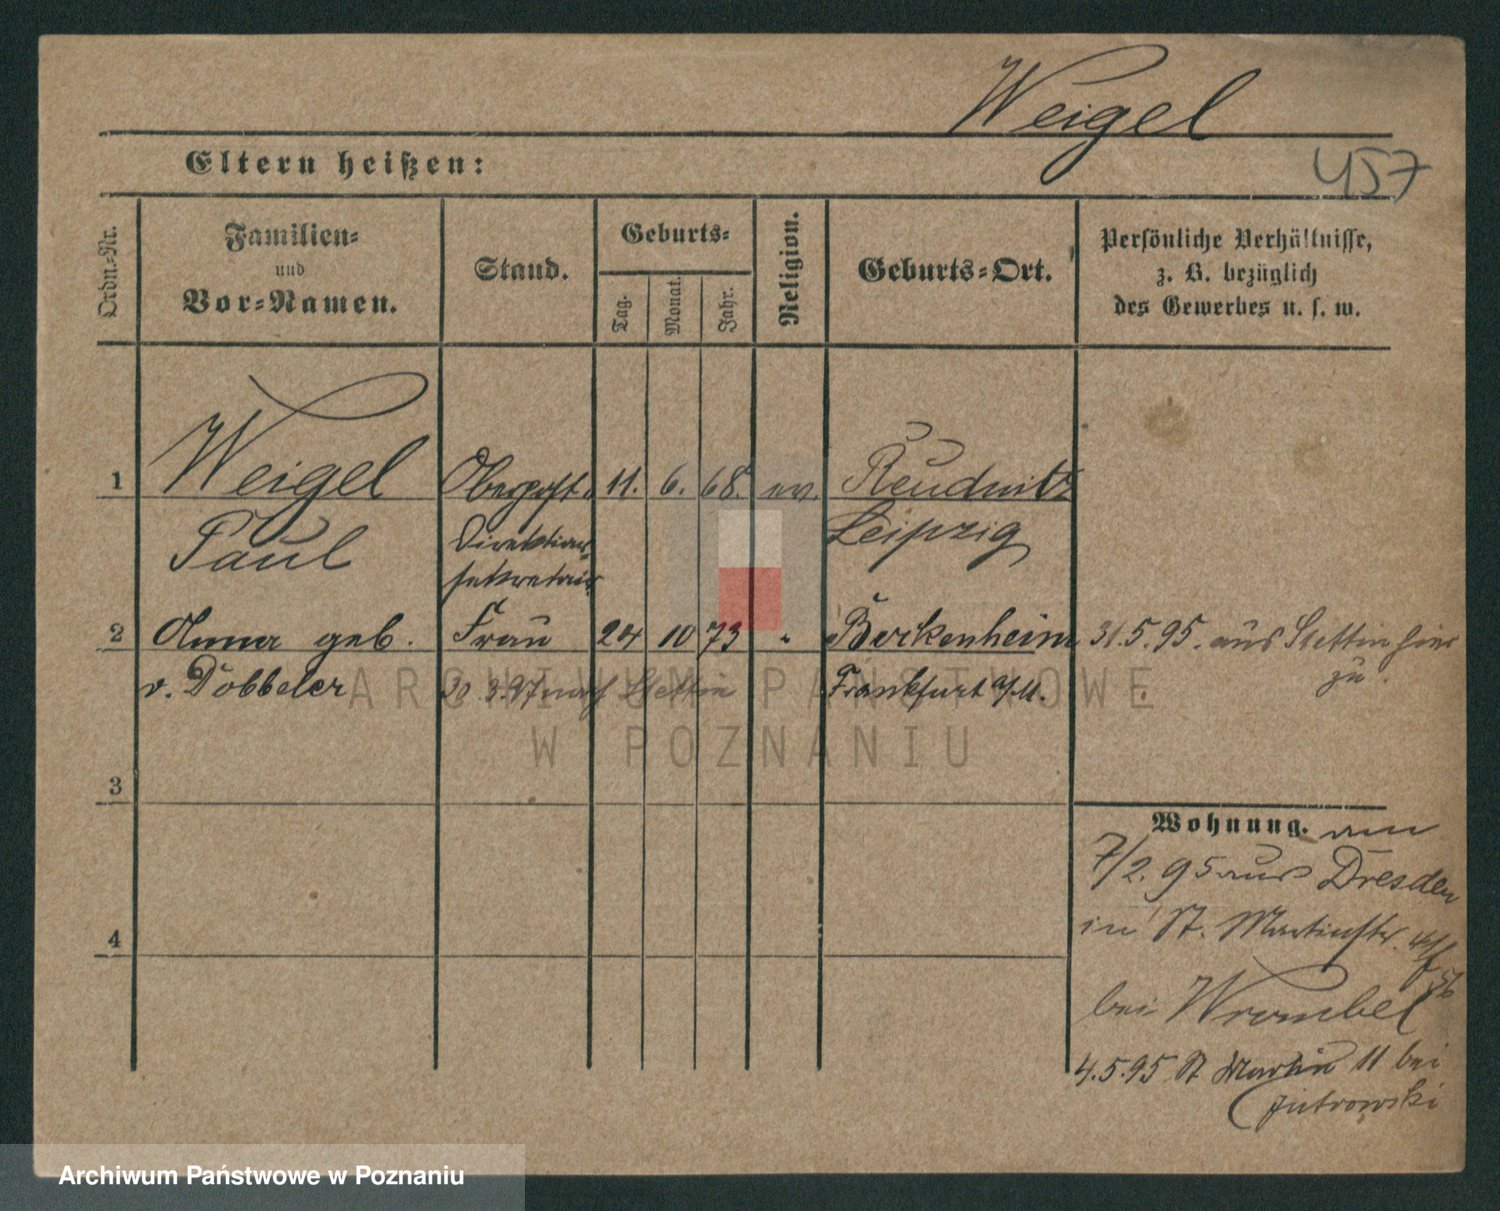 Weigel
457
Eltern heißen:
Ordn.-Nr.
Familien- und Vor-Namen.
Stand.
Geburts-
Tag.
Monat.
Jahr.
Religion.
Geburts-Ort.
Persönliche Verhältnisse,
z. B. bezüglich
des Gewerbes u. s. w.
1 Weigel Oberpost 11. 6. 68. ev. Reudnitz
Paul Direktions- Leipzig
sekretair
2 Anna geb. Frau 24 10 73 " Bockenheim 31.5.95. aus Stettin hier
v. Döbbeler 30 3.97 nach Stettin Frankfurt a/M. zu.
ARCHIWUM PAŃSTWOWE
W POZNANIU
3
Wohnung. am
7/2. 95 aus Dresden
in St. Martinstr.
4
bei Wrombel
4.5.95 St Martin 11 bei
Jutrowski
Archiwum Państwowe w Poznaniu